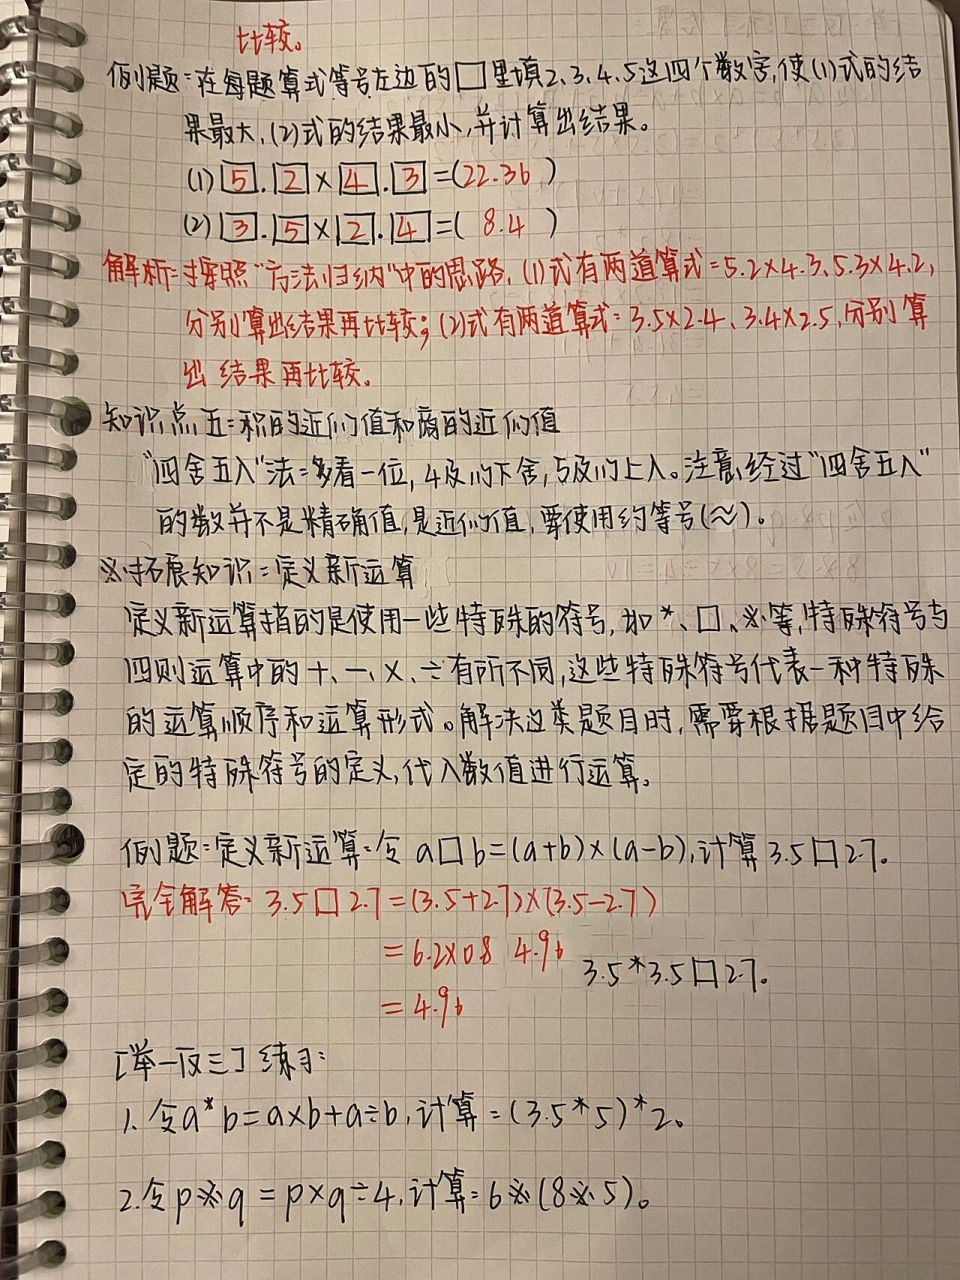 比较。
例题:在每题算式等号左边的□里填2、3、4、5这四个数字,使(1)式的结
果最大,(2)式的结果最小,并计算出结果。
(1) 5.2×4.3=(22.36)
(2) 3.5×2.4=(8.4)
解析:按照“方法归纳”中的思路,(1)式有两道算式:5.2×4.3、5.3×4.2,
分别算出结果再比较;(2)式有两道算式:3.5×2.4、3.4×2.5,分别算
出结果再比较。
知识点五:积的近似值和商的近似值
“四舍五入”法:多看一位,4及以下舍,5及以上入。注意,经过“四舍五入”
的数并不是精确值,是近似值,要使用约等号(≈)。
※拓展知识:定义新运算
定义新运算指的是使用一些特殊的符号,如*、□、※等,特殊符号与
四则运算中的+、-、×、÷有所不同,这些特殊符号代表一种特殊
的运算顺序和运算形式。解决这类题目时,需要根据题目中给
定的特殊符号的定义,代入数值进行运算。
例题:定义新运算:令a□b=(a+b)×(a-b),计算3.5□2.7。
完全解答:3.5□2.7=(3.5+2.7)×(3.5-2.7)
=6.2×0.8 4.96
3.5*3.5□2.7。
=4.96
[举一反三]练习:
1.令a*b=a×b+a÷b,计算:(3.5*5)*2。
2.令p※q=p×q÷4,计算:6※(8※5)。